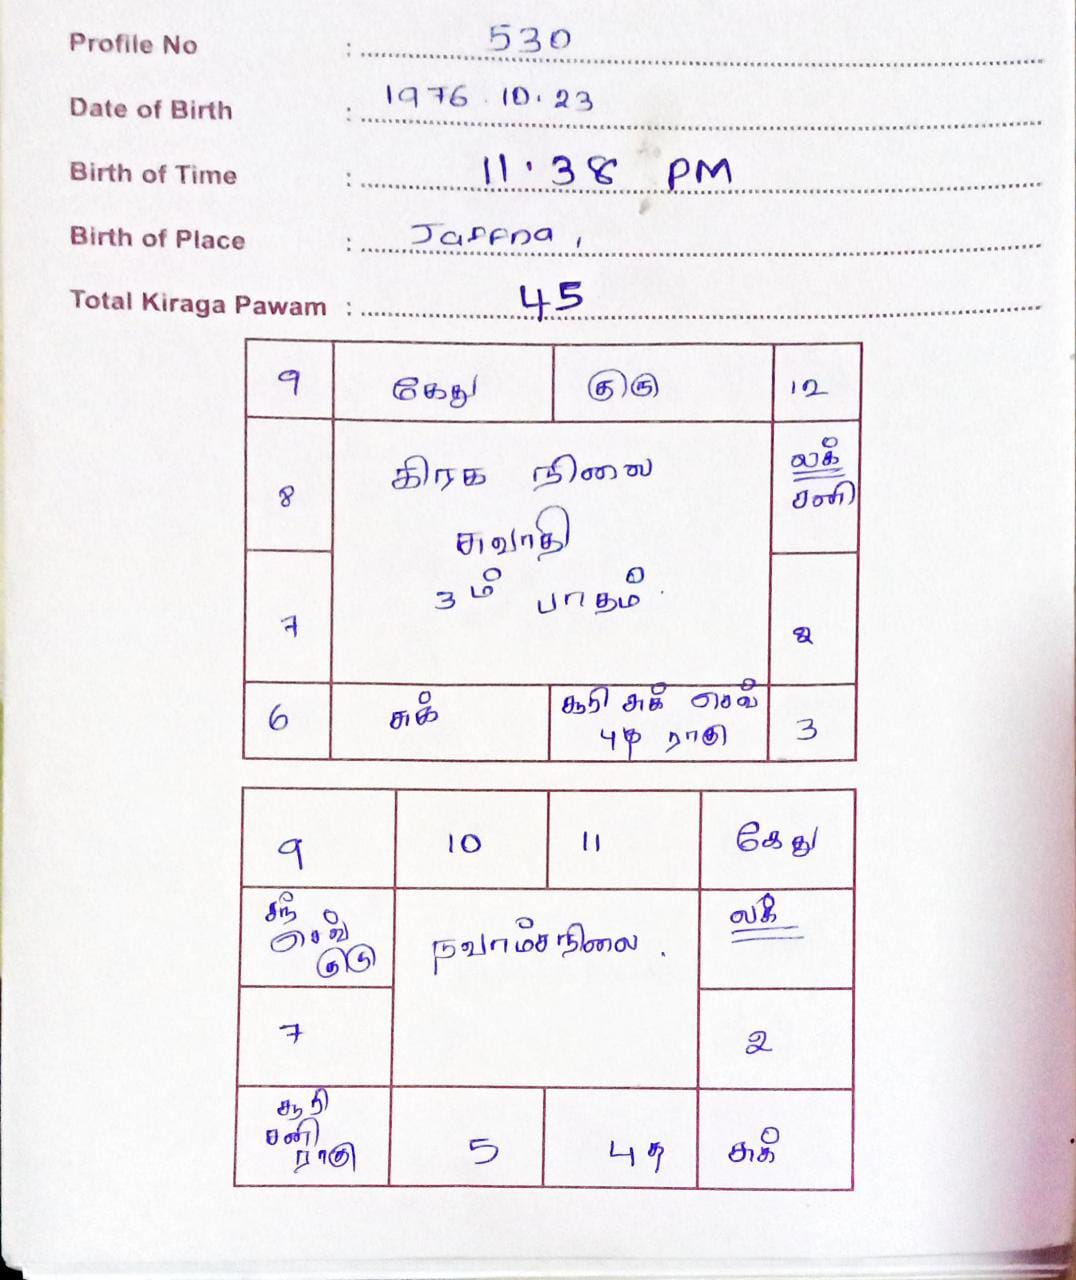 Profile No : 530
Date of Birth : 1976.10.23
Birth of Time : 11.38 PM
Birth of Place : Jaffna,
Total Kiraga Pawam : 45
9 கேது குரு 12
கிரக நிலை
லக்
சனி
8
சுவாதி
3ம் பாதம்.
7 2
6 சுக் சூரி சுக் செவ் 3
புத ராகு
9 10 11 கேது
சந்
செவ்
குரு
நவாம்சநிலை.
லக்
7 2
சூரி
சனி
ராகு
5 புத சுக்